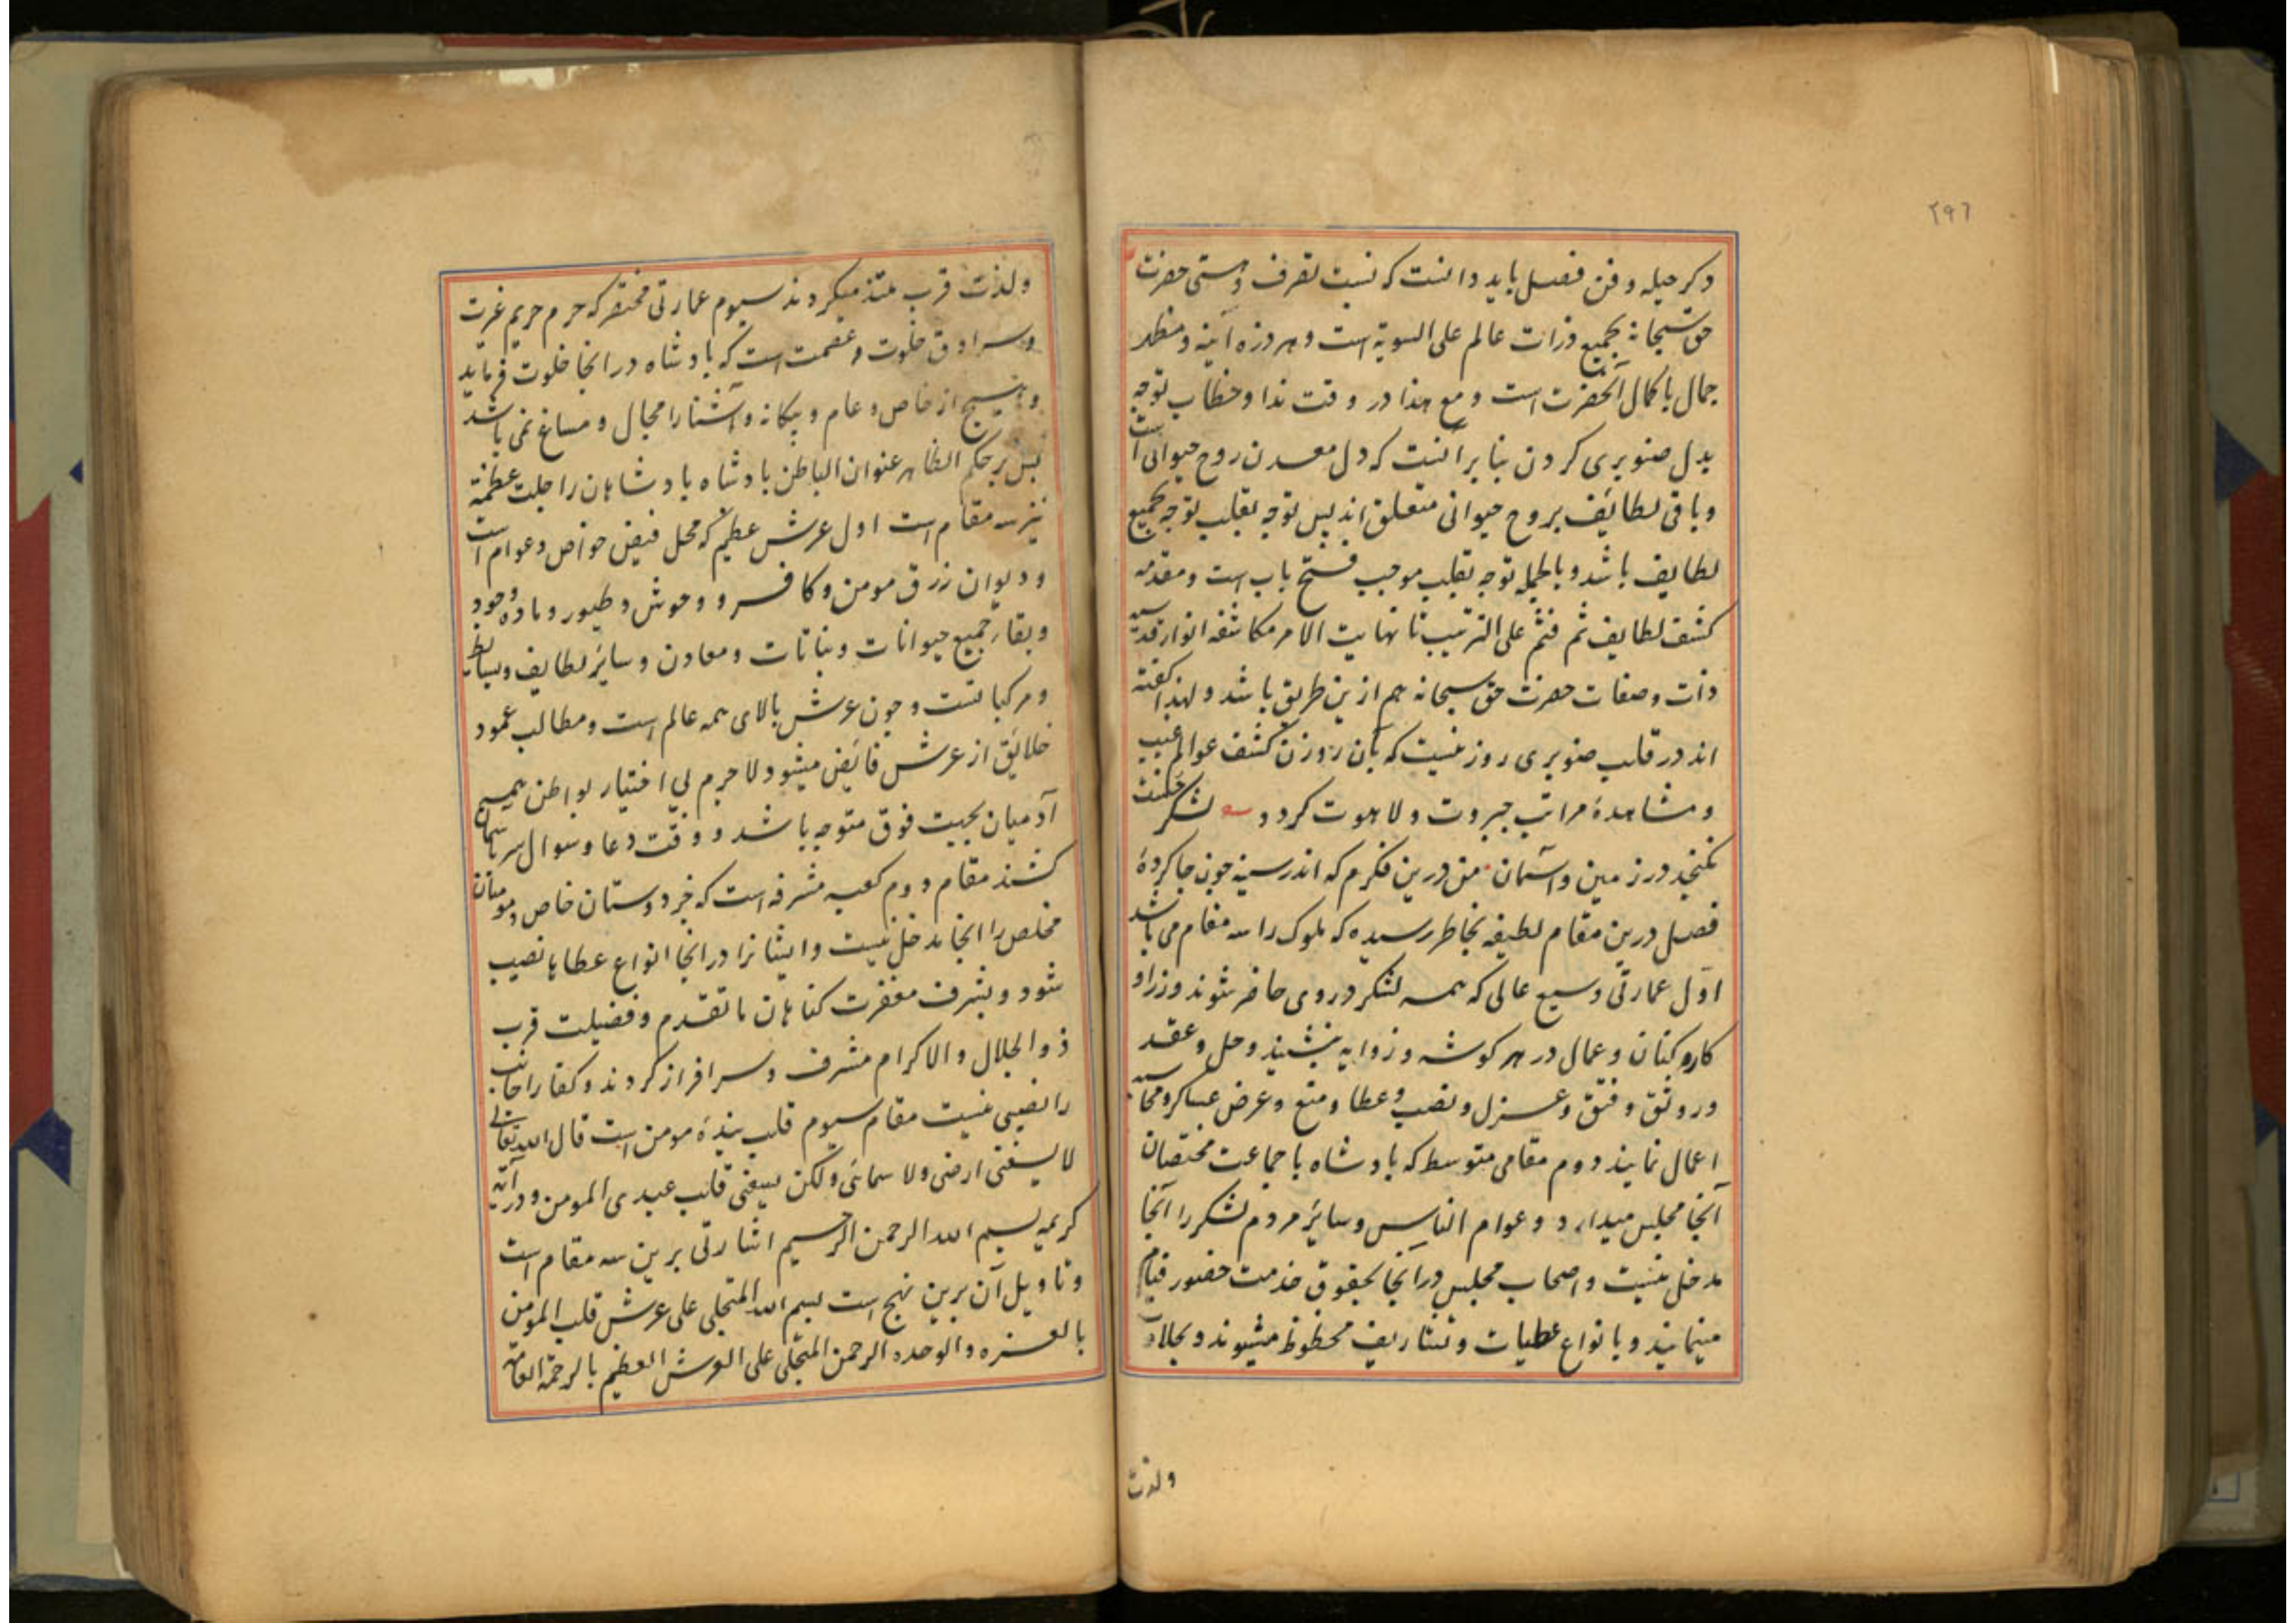 ۲۹۶
دکر حیله و فن فصل باید دانست که نسبت تصرف و هستی حضرت
حق سبحانه بجمیع ذرات عالم علی السویة است و هر ذره آینه و مظهر
جمال با کمال آنحضرت است و مع هذا در وقت ندا و خطاب توجه
بدل صنوبری کردن بنابر آنست که دل معدن روح حیوانی است
و باقی لطایف بروح حیوانی متعلق اند پس توجه بقلب توجه بجمیع
لطایف باشد و بالجمله توجه بقلب موجب فتح باب است و مقدمه
کشف لطایف ثم فثم علی الترتیب تا نهایت الامر مکاشفه انوار قدسیه
ذات و صفات حضرت حق سبحانه هم ازین طریق باشد و لهذا گفته
اند در قلب صنوبری روزنیست که بآن روزن کشف عوالم غیب
و مشاهدهٔ مراتب جبروت و لاهوت کردد لشکر حسنت
نکنجد در زمین و آسمان من درین فکرم که اندر سینه چون جا کردهٔ
فصل درین مقام لطیفه بخاطر رسیده که ملوک را سه مقام می باشد
اول عمارتی وسیع عالی که همه لشکر در وی حاضر شوند و وزرا و
کارو کنان و عمال در هر کوشه و زوایه بنشینند و حل و عقد
و رونق و فتق و عزل و نصب و عطا و منع و عرض عساکر و محاسبه
اعمال نمایند دوم مقامی متوسط که بادشاه با جماعت مختصان
آنجا مجلس میدارد و عوام الناس و سایر مردم لشکر را آنجا
مدخل نیست و اصحاب مجلس در آنجا بحقوق خدمت حضور قیام
مینمایند و بانواع عطیات و تشاریف محظوظ میشوند و بحلاوت
ولذت
ولذت قرب متلذ میکردند سیوم عمارتی مختصر که حرم حریم غیرت
و سرادق خلوت و عصمت است که بادشاه در انجا خلوت فرماید
و هیچ از خاص و عام و بیکانه و آشنا را مجال و مساغ نمی باشد
پس بر حکم الظاهر عنوان الباطن بادشاه بادشاهان را جلت عظمته
نیز سه مقام است اول عرش عظیم که محل فیض خواص و عوام است
و دیوان رزق مومن و کافر و وحوش و طیور و ماده وجود
و بقاء جمیع حیوانات و نباتات و معادن و سایر لطایف و بسایط
و مرکباتست و چون عرش بالای همه عالم است و مطالب عمود
خلایق از عرش فایض میشود لاجرم بی اختیار بواطن جمیع
آدمیان بجهت فوق متوجه باشد و وقت دعا و سوال سر بآسمان
کشند مقام دوم کعبه مشرفه است که جز دوستان خاص و مومنان
مخلص را انجا مدخل نیست و ایشانرا در انجا انواع عطایا نصیب
شود و بشرف مغفرت کناهان ما تقدم و فضیلت قرب
ذو الجلال و الاکرام مشرف و سرافراز کردند و کفار اجانب
را نصیبی نیست مقام سیوم قلب بندهٔ مومن است قال الله تعالی
لا یسعنی ارضی ولا سمائی ولکن یسعنی قلب عبدی المومن و در آیه
کریمه بسم الله الرحمن الرحیم اشارتی برین سه مقام است
و تاویل آن برین نهج است بسم الله المتجلی علی عرش قلب المومن
بالعزه و الوحده الرحمن المتجلی علی العرش العظیم بالرحمة العامه